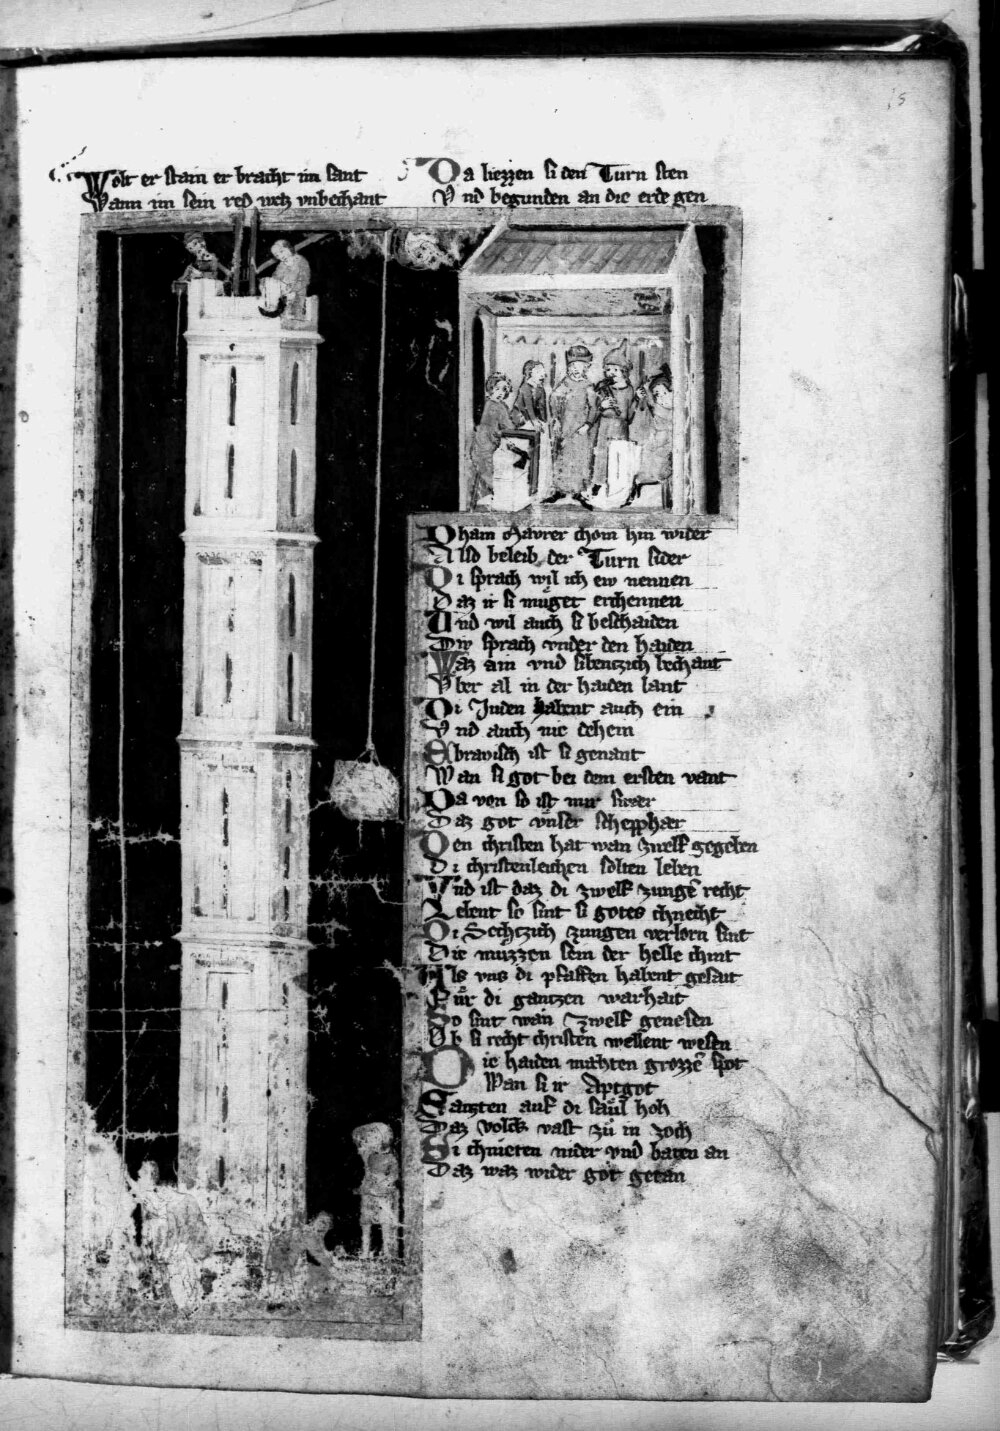 Wolt er stain er bracht im sant
Wann im sein red wcz vnbechant
Da liezzen si den Turn sten
Vnd begunden an die erde gen
Dham Mavrer chom hin wider
Also beleib der Turn sider
Di sprach wil ich ew nennen
Daz ir si muget erchennen
Vnd wil auch si beschaiden
Diw sprach vnder den haiden
Waz ain vnd sibentzich bechant
Vber al in der haiden lant
Di Juden habent auch ein
Vnd auch nie dehein
Ebrayisch ist si genant
Wan si got bei dem ersten vant
Da von so ist mir
Daz got vnser schepphær
Den christen hat wan zwelf gegeben
Di christenleichen solten leben
Vnd ist daz di zwelf zungē recht
Lebent so sint si gotes chnecht
Di Sechczich zungen verlorn sint
Die müzzen sein der helle chint
Als vns di pfaffen habent gesait
Für di gantzen warhait
So sint wan zwelf genesen
Ob si recht christen wellent wesen
Die haiden mahten grozzē spot
Wan si ir Aptgot
Satzten auf di saul hoh
Daz volck vast zů in zoch
Si chnieten nider vnd baten an
Daz waz wider got getan
15